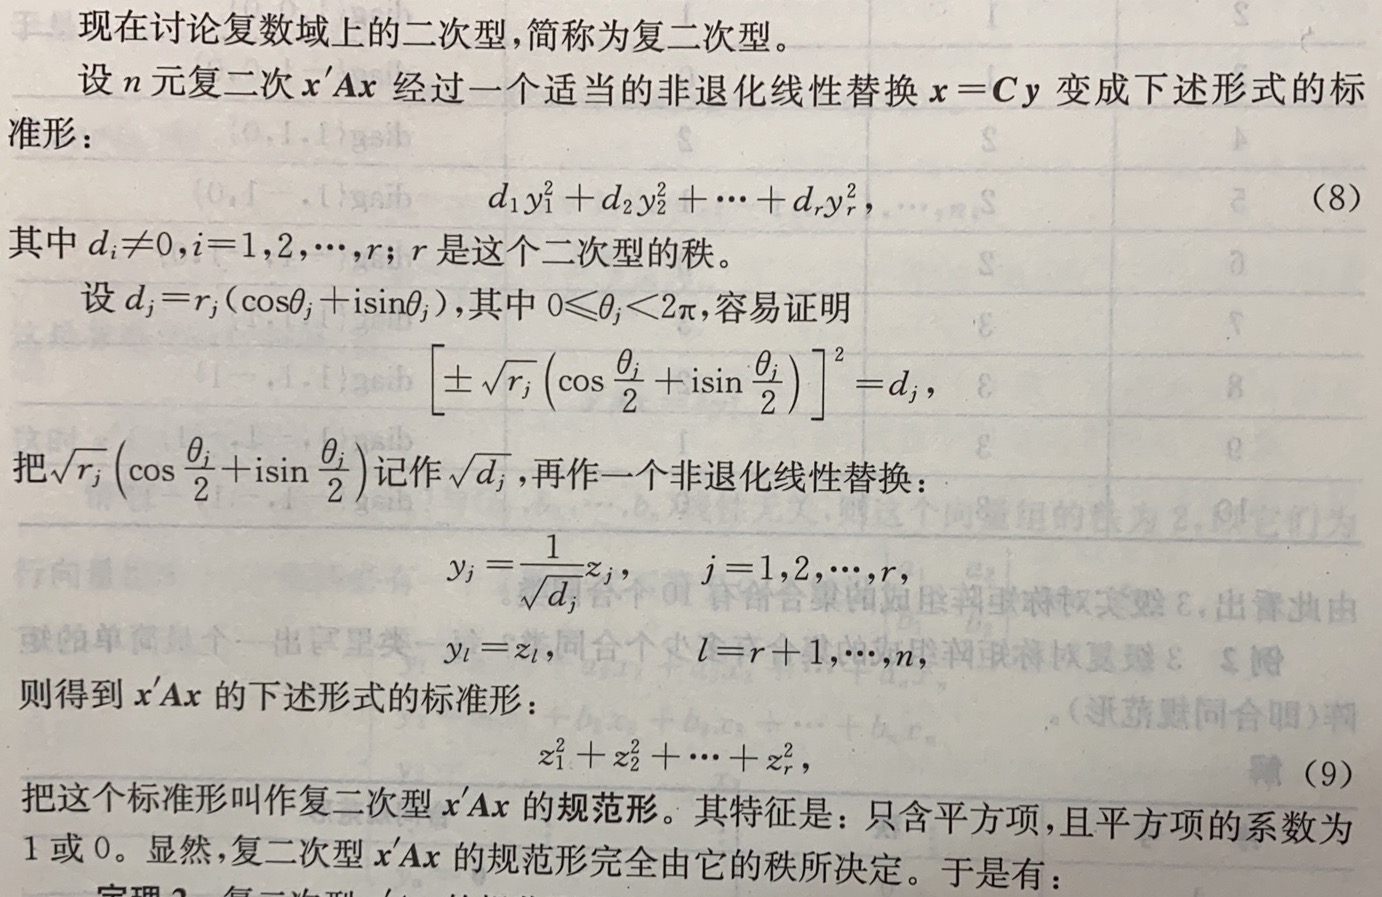 现在讨论复数域上的二次型,简称为复二次型。
设 n 元复二次 x′Ax 经过一个适当的非退化线性替换 x=Cy 变成下述形式的标
准形:
d₁y₁²+d₂y₂²+⋯+dᵣyᵣ², (8)
其中 dᵢ≠0,i=1,2,⋯,r; r 是这个二次型的秩。
设 dⱼ=rⱼ(cosθⱼ+isinθⱼ),其中 0≤θⱼ<2π,容易证明
[±√rⱼ(cos θⱼ/2+isin θⱼ/2)]²=dⱼ,
把√rⱼ(cos θⱼ/2+isin θⱼ/2)记作√dⱼ,再作一个非退化线性替换:
yⱼ=1/√dⱼ zⱼ, j=1,2,⋯,r,
yₗ=zₗ, l=r+1,⋯,n,
则得到 x′Ax 的下述形式的标准形:
z₁²+z₂²+⋯+zᵣ², (9)
把这个标准形叫作复二次型 x′Ax 的规范形。其特征是: 只含平方项,且平方项的系数为
1 或 0。显然,复二次型 x′Ax 的规范形完全由它的秩所决定。于是有: